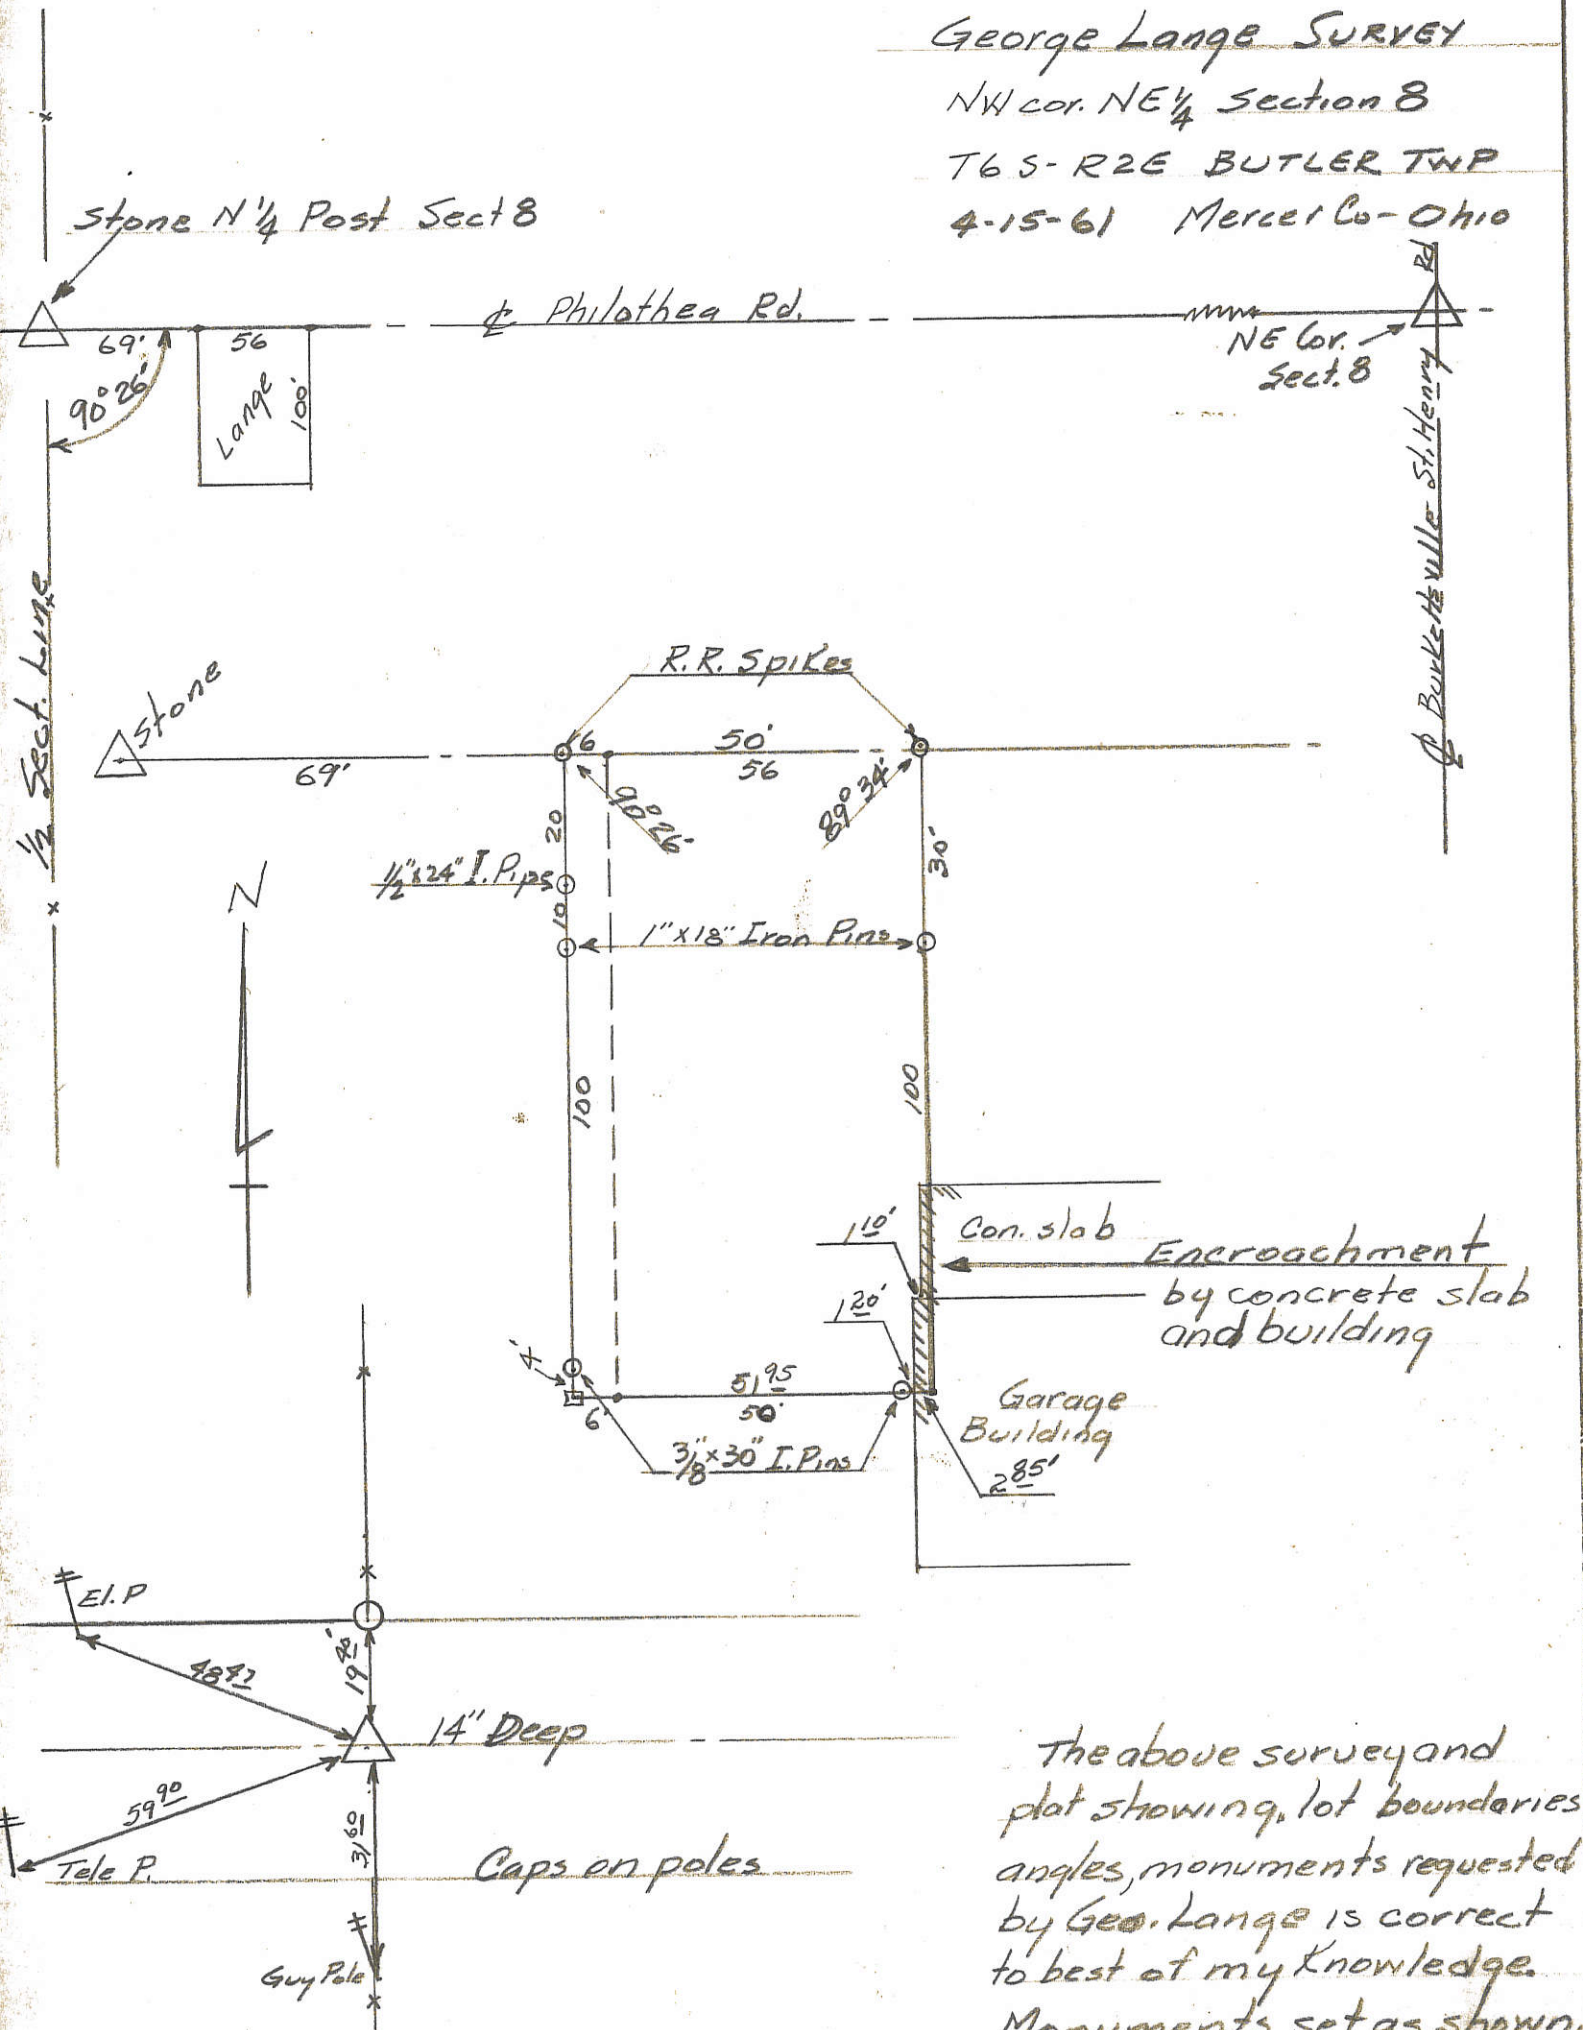 George Lange SURVEY
NW cor. NE 1/4 Section 8
T6S-R2E BUTLER TWP
4-15-61 Mercer Co-Ohio
Stone N 1/4 Post Sect 8
℄ Philothea Rd.
69'
56
90°26'
Lange
100'
NE Cor.
Sect. 8
℄ Burkettsville St. Henry Rd
1/2 Sect. Line
Stone
69'
R.R. Spikes
6
50'
56
90°26'
89°34'
20
30'
1/2"x24" I. Pips
10
1"x18" Iron Pins
N
100
100
1 10'
Con. slab
Encroachment
by concrete slab
and building
1 20'
4'
51 95
6'
50'
Garage
Building
3/8"x30" I. Pins
2 85'
El. P
48 47
19 40'
14" Deep
59 90
31 60
Tele P.
Caps on poles
Guy Pole
The above survey and
plat showing, lot boundaries
angles, monuments requested
by Geo. Lange is correct
to best of my Knowledge.
Monuments set as shown.